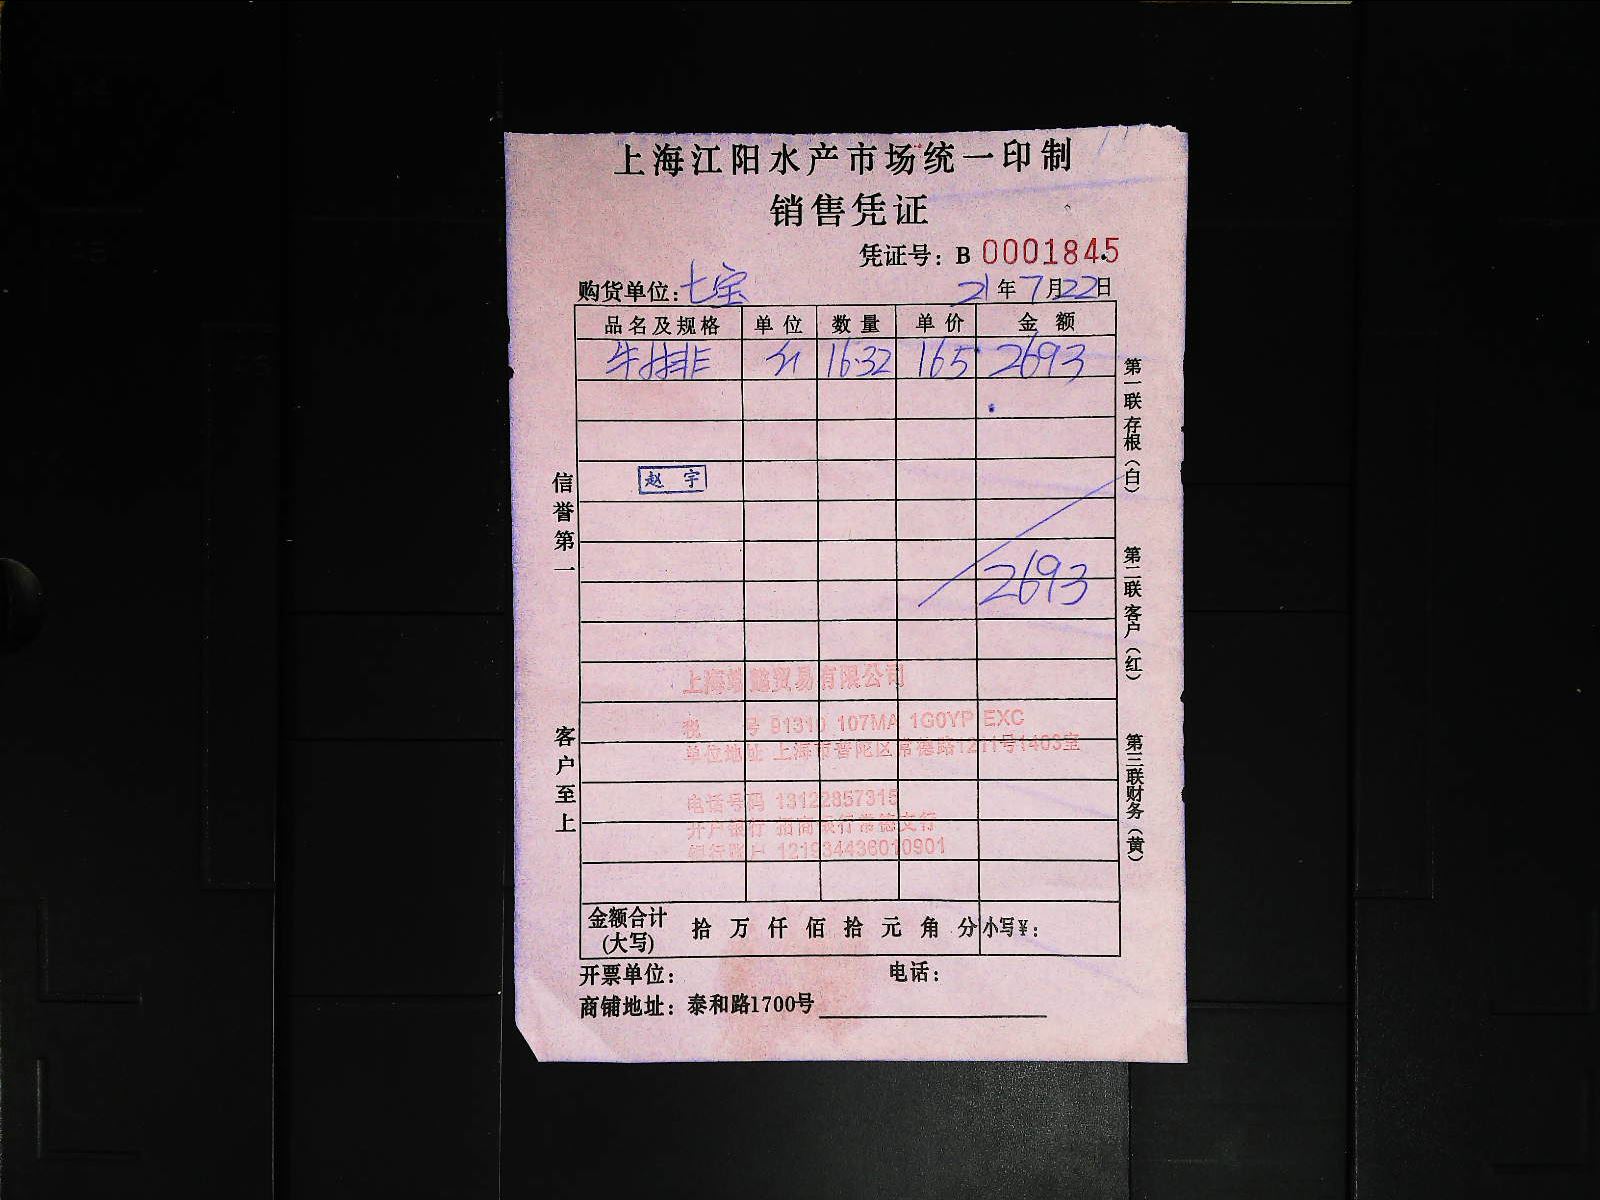 上海江阳水产市场统一印制
销售凭证
凭证号：B 0001845
购货单位：七宝 21年7月22日
品名及规格 单位 数量 单价 金额
牛排 斤 16.32 165 2693
赵 宇
2693
上海 贸易有限公司
税 号 91310 107MA 1G0YP EXC
单位地址 上海市普陀区常德路1211号1403室
电话号码 13122857315
开户银行 招商银行常德支行
银行账户 121934436010901
金额合计(大写) 拾 万 仟 佰 拾 元 角 分 小写¥：
开票单位： 电话：
商铺地址：泰和路1700号
信誉第一
客户至上
第一联 存根（白）
第二联 客户（红）
第三联 财务（黄）